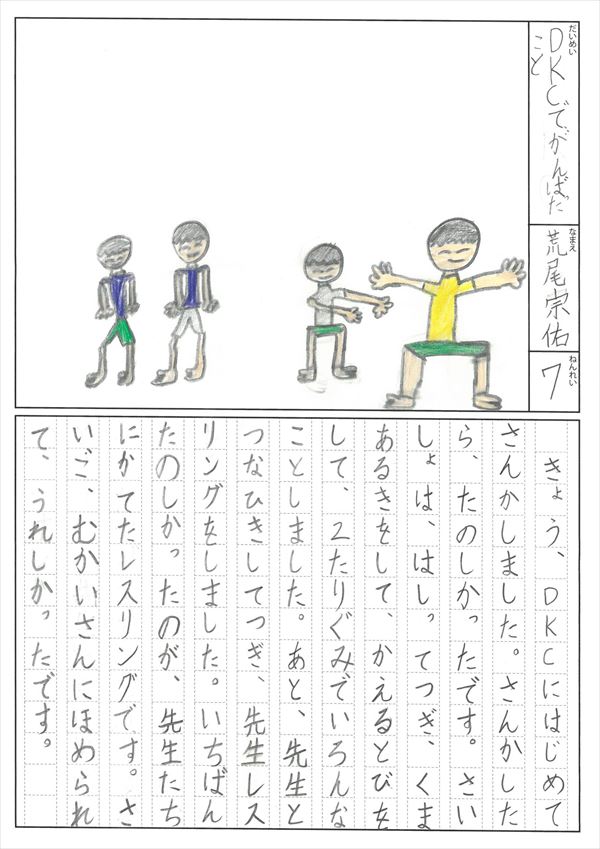 だいめい
DKCでがんばった
こと
なまえ
荒尾宗佑
ねんれい
7
きょう、DKCにはじめて
さんかしました。さんかした
ら、たのしかったです。さい
しょは、はしってつぎ、くま
あるきをして、かえるとびを
して、2たりぐみでいろんな
ことしました。あと、先生と
つなひきしてつぎ、先生レス
リングをしました。いちばん
たのしかったのが、先生たち
にかてたレスリングです。さ
いご、むかいさんにほめられ
て、うれしかったです。